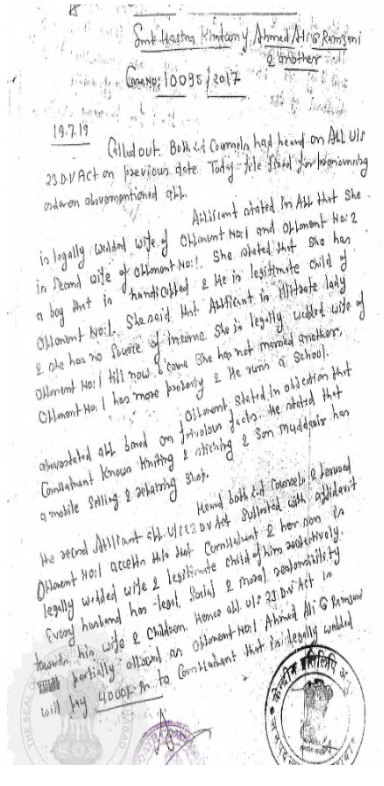 Smt Hasina Kirmany Ahmed Ali @ Ramjani
& another
Case No: 10095/2017
19.7.19
Called out. Both Ld Counsels had heard on App U/s
23 D.V Act on previous date. Today file fixed for pronouncing
order on abovementioned app.
Applicant stated in App that she
is legally wedded wife of Opponent No:1 and Opponent No:2
is second wife of Opponent No:1. She stated that she has
a boy that is handicapped & He is legitimate child of
Opponent No:1. She said that Applicant is illiterate lady
& she has no source of Income. She is legally wedded wife of
Opponent No:1 till now & came she has not married another.
Opponent No. 1 has more property & He runs a school.
Opponent stated in objection that
abovestated app based on frivolous facts. He stated that
Complainant Known Knitting & stiching & son has
a mobile selling & repairing shop.
Heard both Ld Counsels & perused
the record Applicant app. U/s 23 D.V Act supported with affidavit
Opponent No:1 accepts this that Complainant & her son is
legally wedded wife & legitimate child of him respectively.
Every husband has legal, Social & moral responsibility
towards his wife & Children. Hence app. U/s 23 D.V Act is
partially allowed as Opponent No:1 Ahmed Ali @ Ramjani
will pay 4000/- to Complainant that is legally wedded